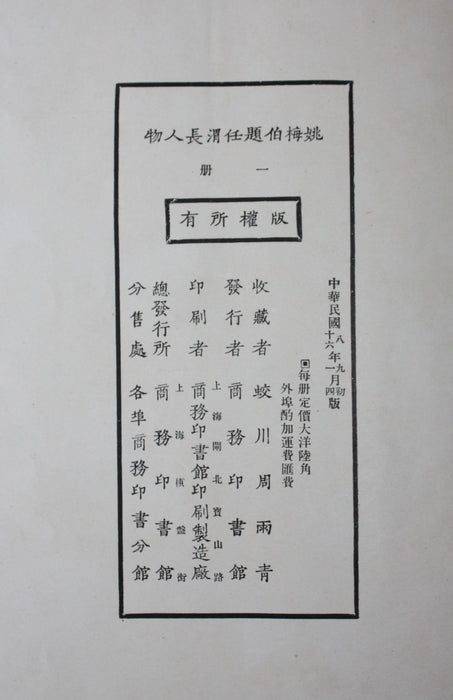 姚梅伯題任渭長人物
一册
版權所有
中華民國八年九月初版
十六年一月四版
每册定價大洋陸角
外埠酌加運費匯費
收藏者 蛟川周雨青
發行者 商務印書館
上海閘北寶山路
印刷者 商務印書館印刷製造廠
上海棋盤街
總發行所 商務印書館
分售處 各埠商務印書分館